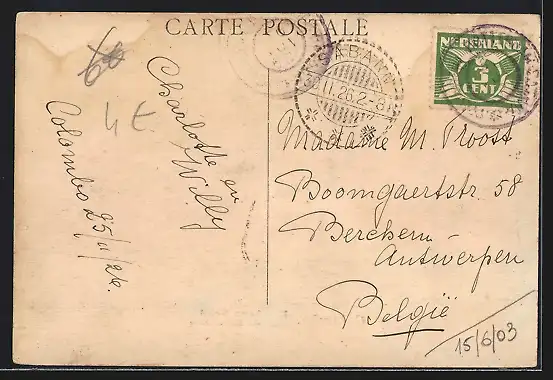 CARTE POSTALE
NEDERLAND
3
CENT
SABANG
11.26.2-8
4 €
Charlotte en
Willy
Colombo 25/11/26.
Madame M. Proost
Boomgaertstr. 58
Berchem
Antwerpen
België
15/6/03